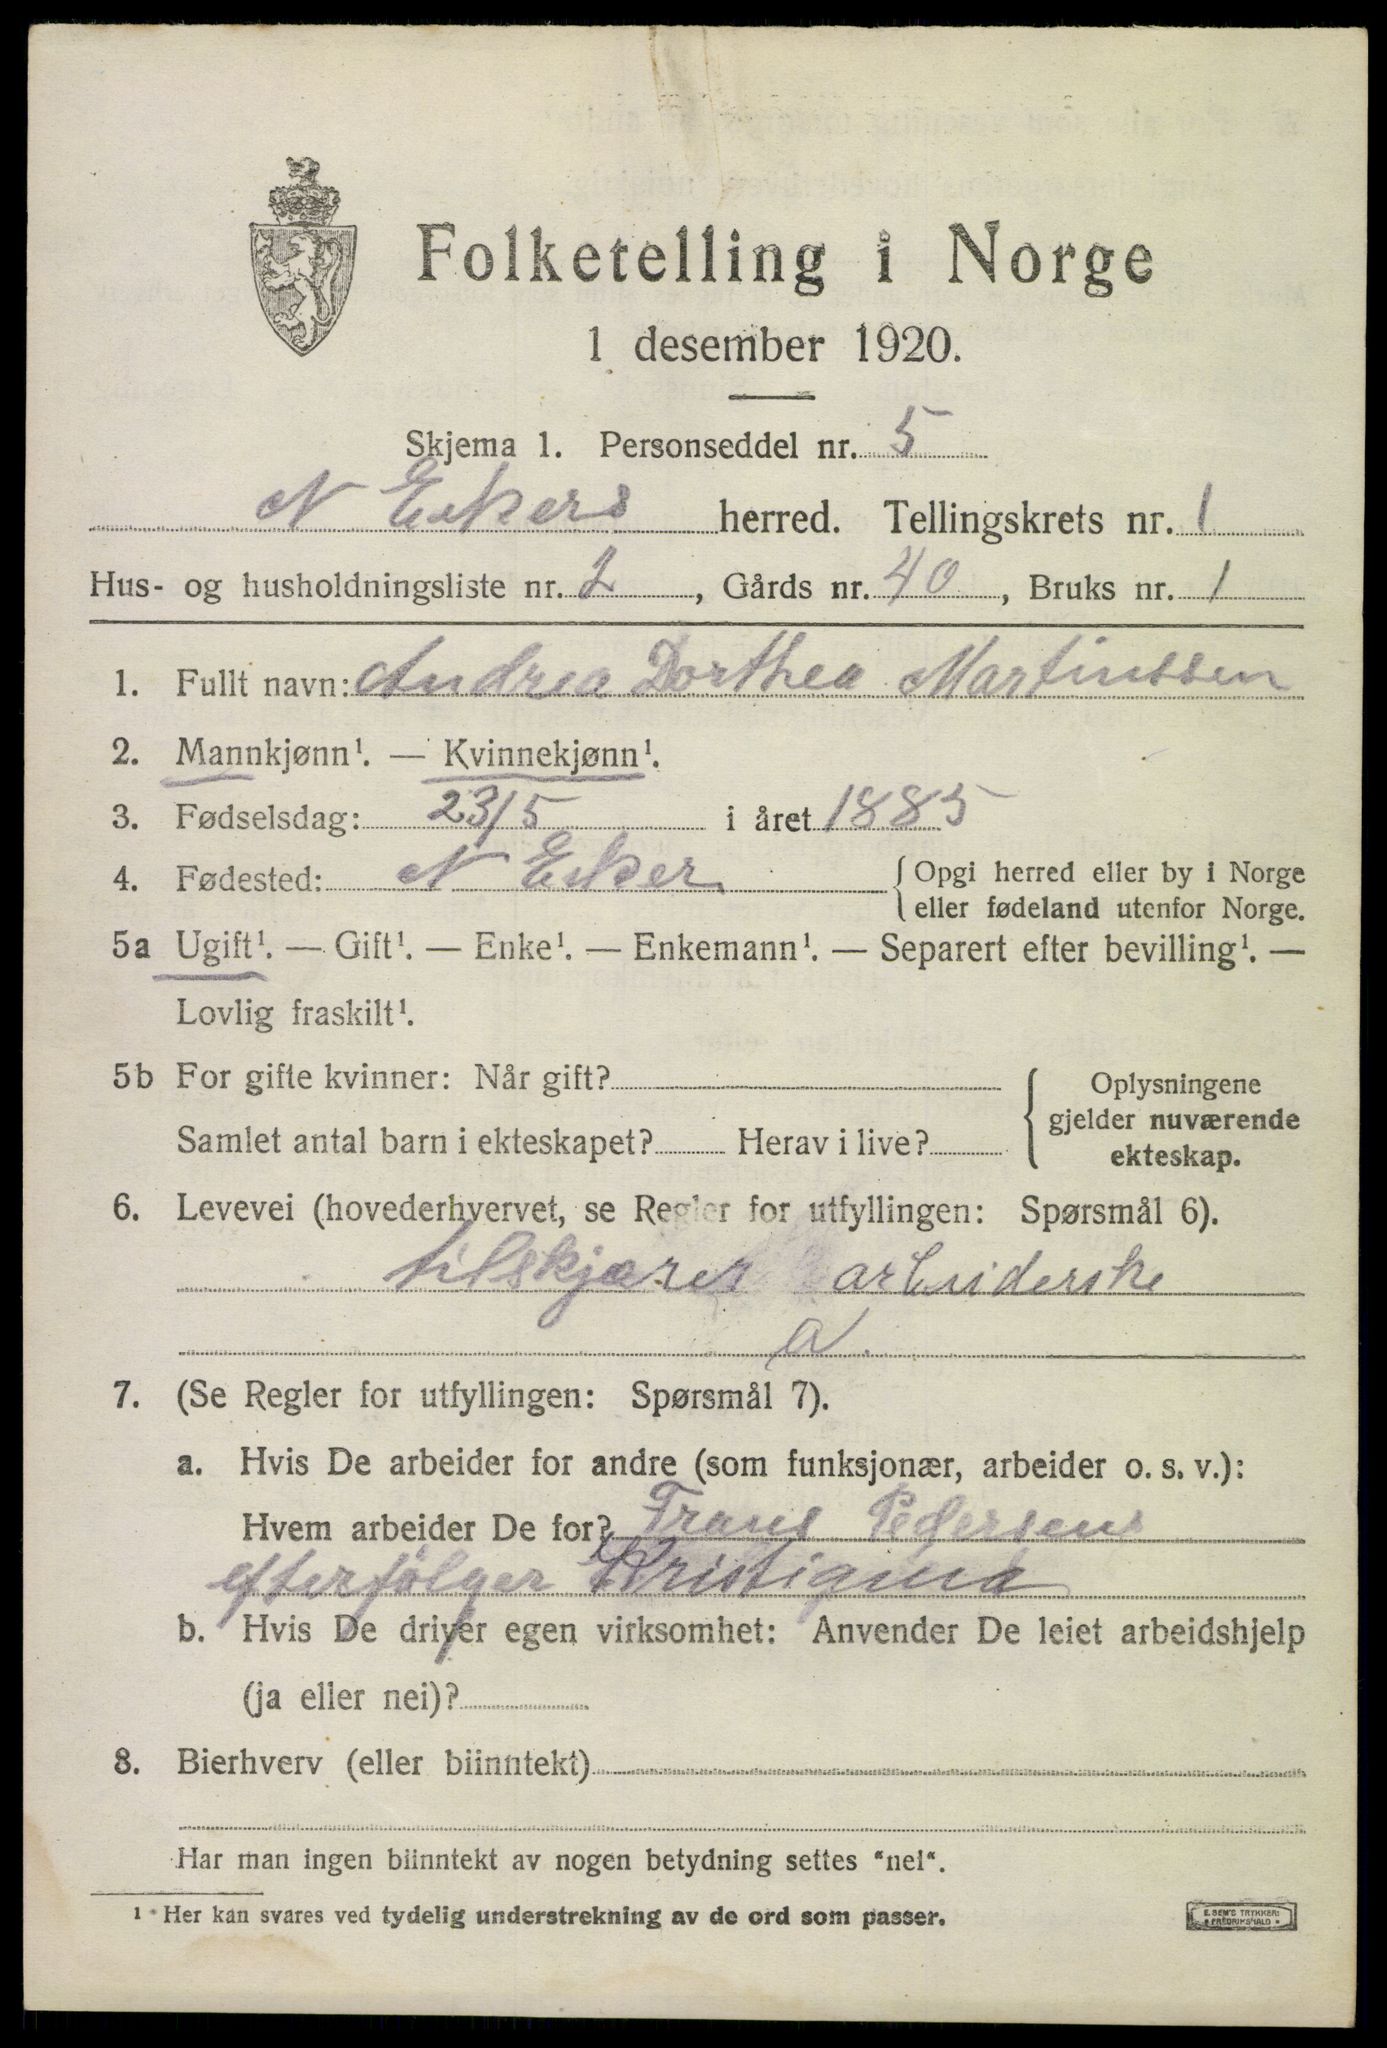 Folketelling i Norge
1 desember 1920.
Skjema 1. Personseddel nr. 5
N Eikers herred. Tellingskrets nr. 1
Hus- og husholdningsliste nr. 2, Gårds nr. 40, Bruks nr. 1
1. Fullt navn: Andrea Dorthea Martinssen
2. Mannkjønn¹. — Kvinnekjønn¹.
3. Fødselsdag: 23/5 i året 1885
4. Fødested: N Eiker { Opgi herred eller by i Norge
eller fødeland utenfor Norge.
5a Ugift¹. — Gift¹. — Enke¹. — Enkemann¹. — Separert efter bevilling¹. —
Lovlig fraskilt¹.
5b For gifte kvinner: Når gift? { Oplysningene
gjelder nuværende
ekteskap.
Samlet antal barn i ekteskapet? Herav i live?
6. Levevei (hovederhvervet, se Regler for utfyllingen: Spørsmål 6).
tilskjærer arbeiderske
a.
7. (Se Regler for utfyllingen: Spørsmål 7).
a. Hvis De arbeider for andre (som funksjonær, arbeider o. s. v.):
Hvem arbeider De for? Frans Pedersens
efterfølger Kristiania
b. Hvis De driver egen virksomhet: Anvender De leiet arbeidshjelp
(ja eller nei)?
8. Bierhverv (eller biinntekt)
Har man ingen biinntekt av nogen betydning settes "nei".
¹ Her kan svares ved tydelig understrekning av de ord som passer.
E. SEM'S TRYKKERI
• FREDRIKSHALD •